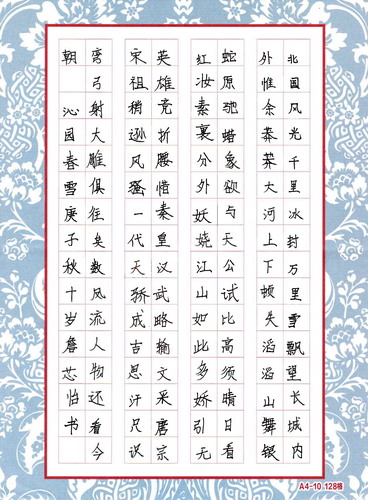 北国风光千里冰封万里雪飘望长城内
外惟余莽莽大河上下顿失滔滔山舞银
蛇原驰蜡象欲与天公试比高须晴日看
红妆素裹分外妖娆江山如此多娇引无
英雄竞折腰惜秦皇汉武略输文采唐宗
宋祖稍逊风骚一代天骄成吉思汗只识
弯弓射大雕俱往矣数风流人物还看今
朝 沁园春雪庚子秋十岁詹芯怡书
A4-10 128格